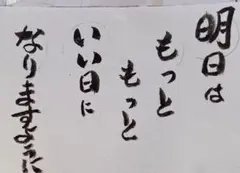 明日は
もっと
もっと
いい日に
なりますように